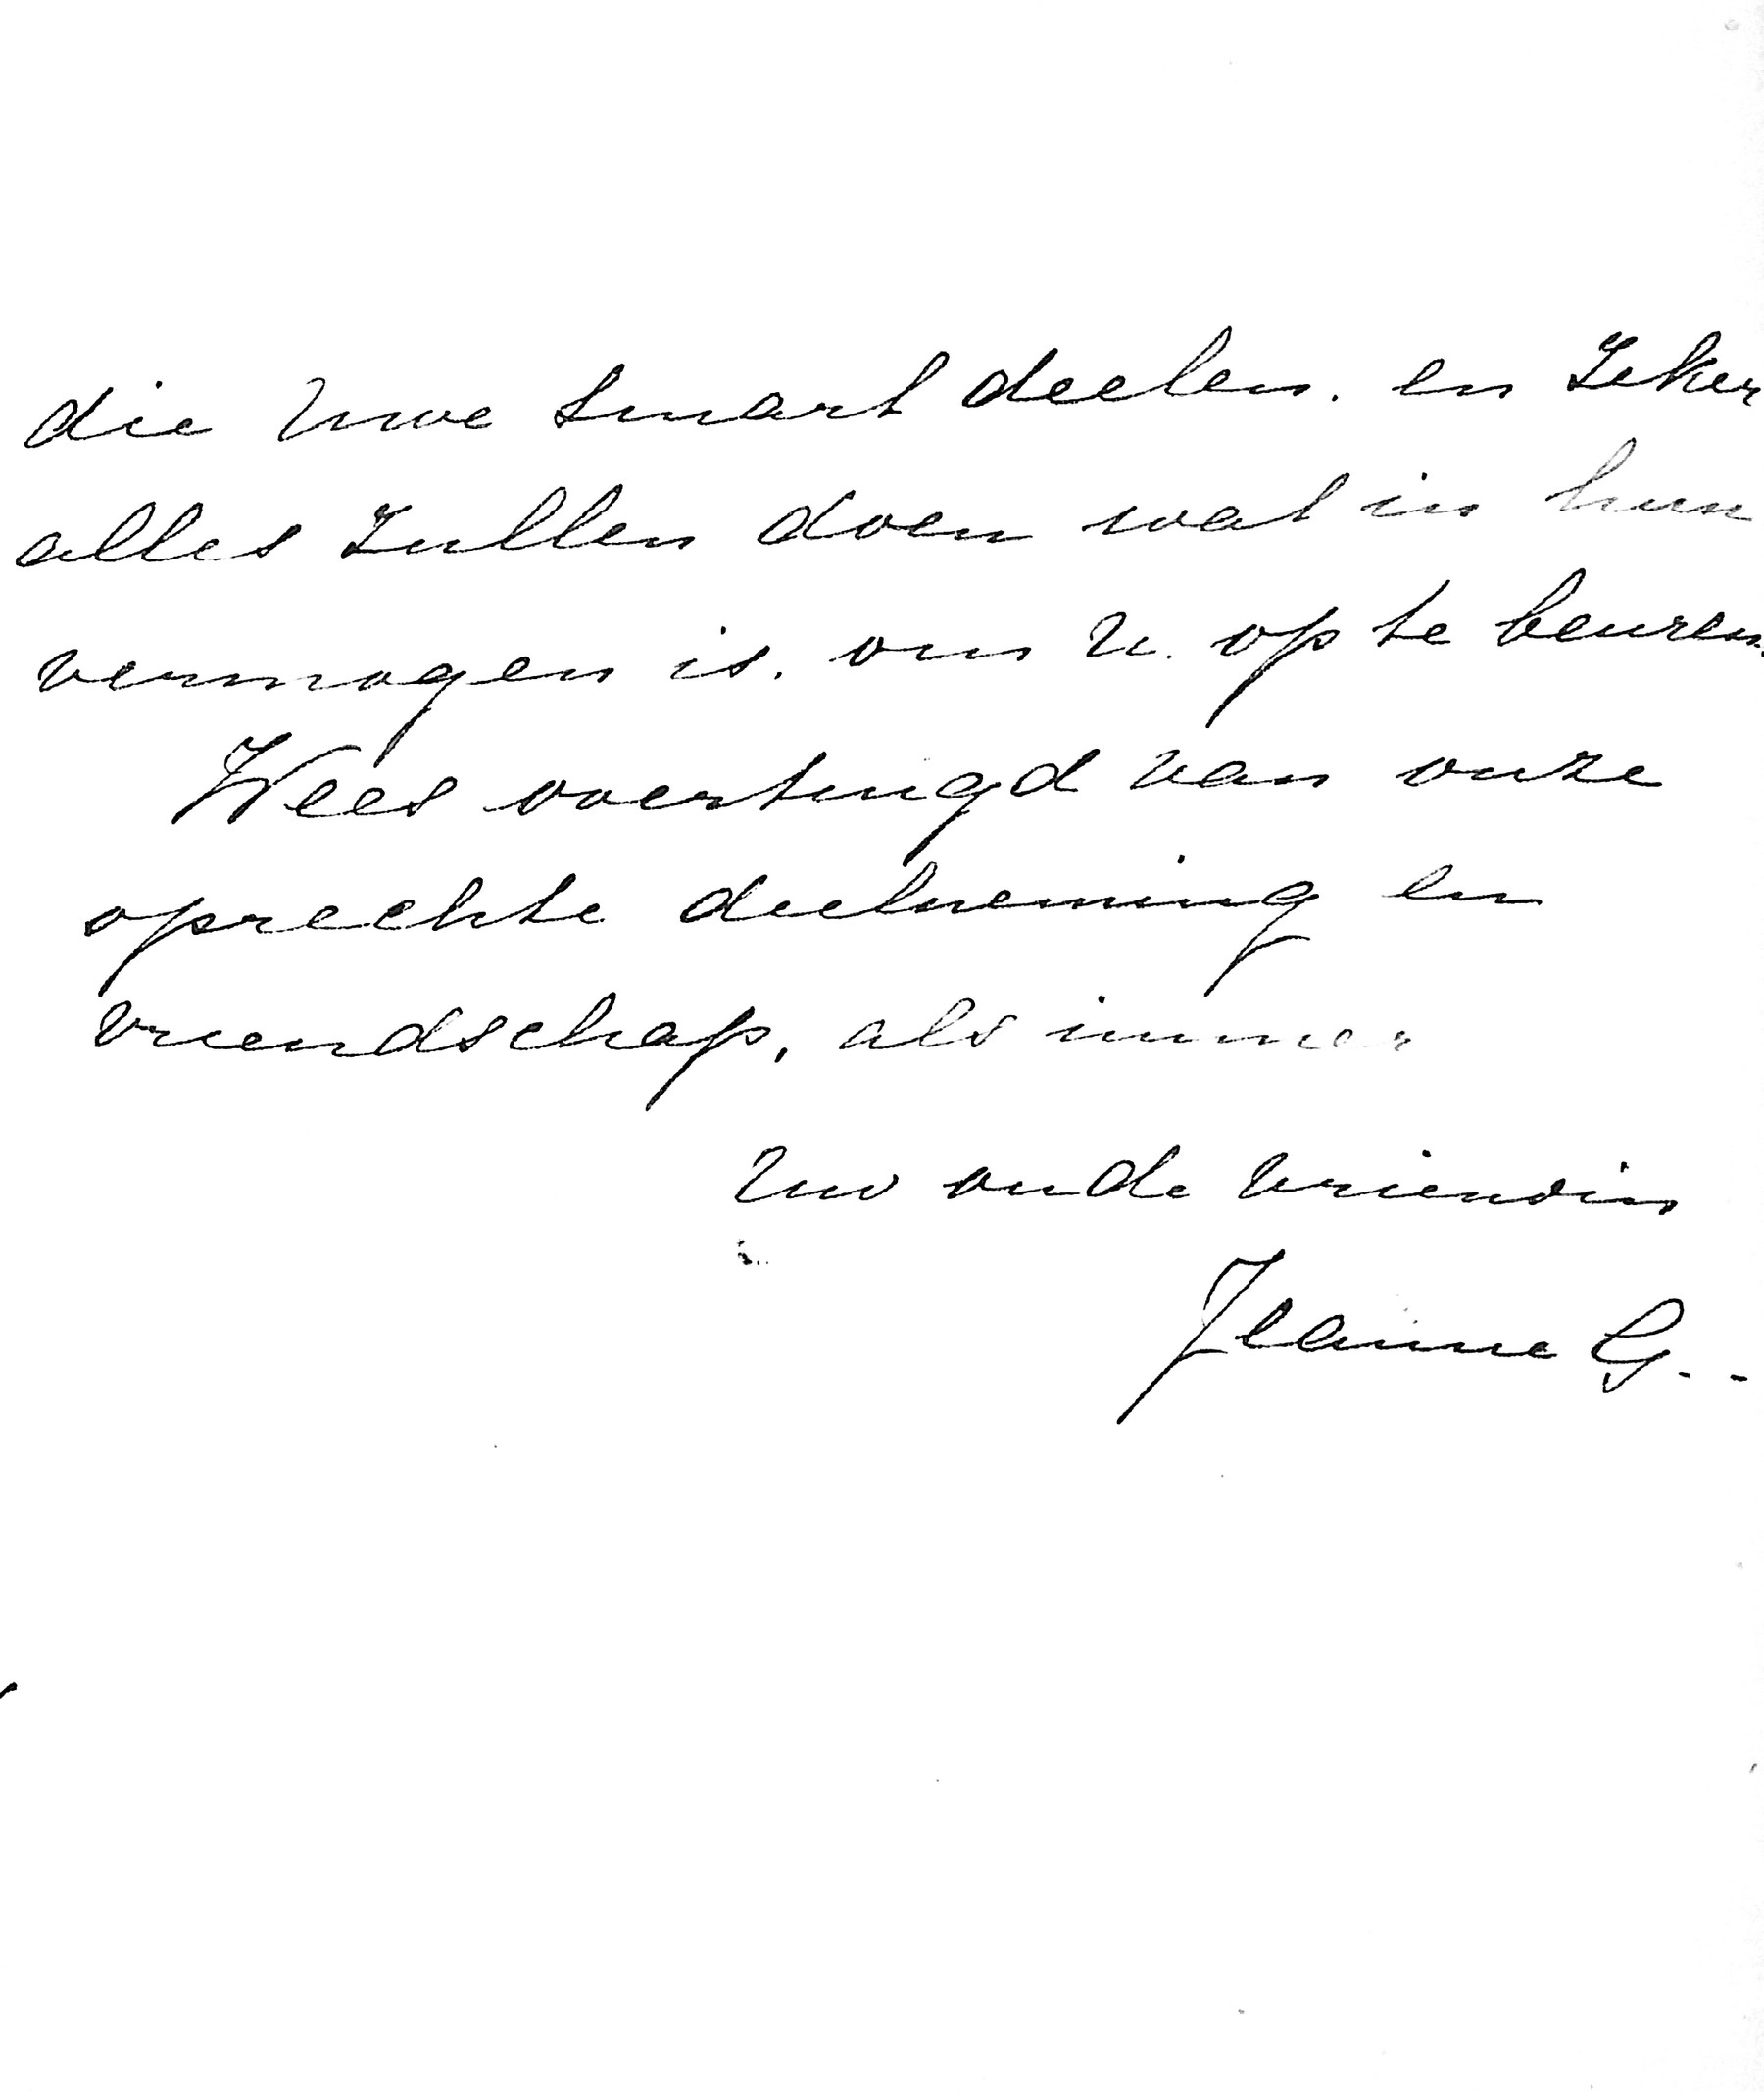 die Uwe smart deelen. en zeker
alles zullen doen wat in hun
vermogen is. om U. op te beuren.
Wees overtuigd van onze
oprechte deelneming en
vriendschap, als immer
Uw oude vriendin
Jeanne G..